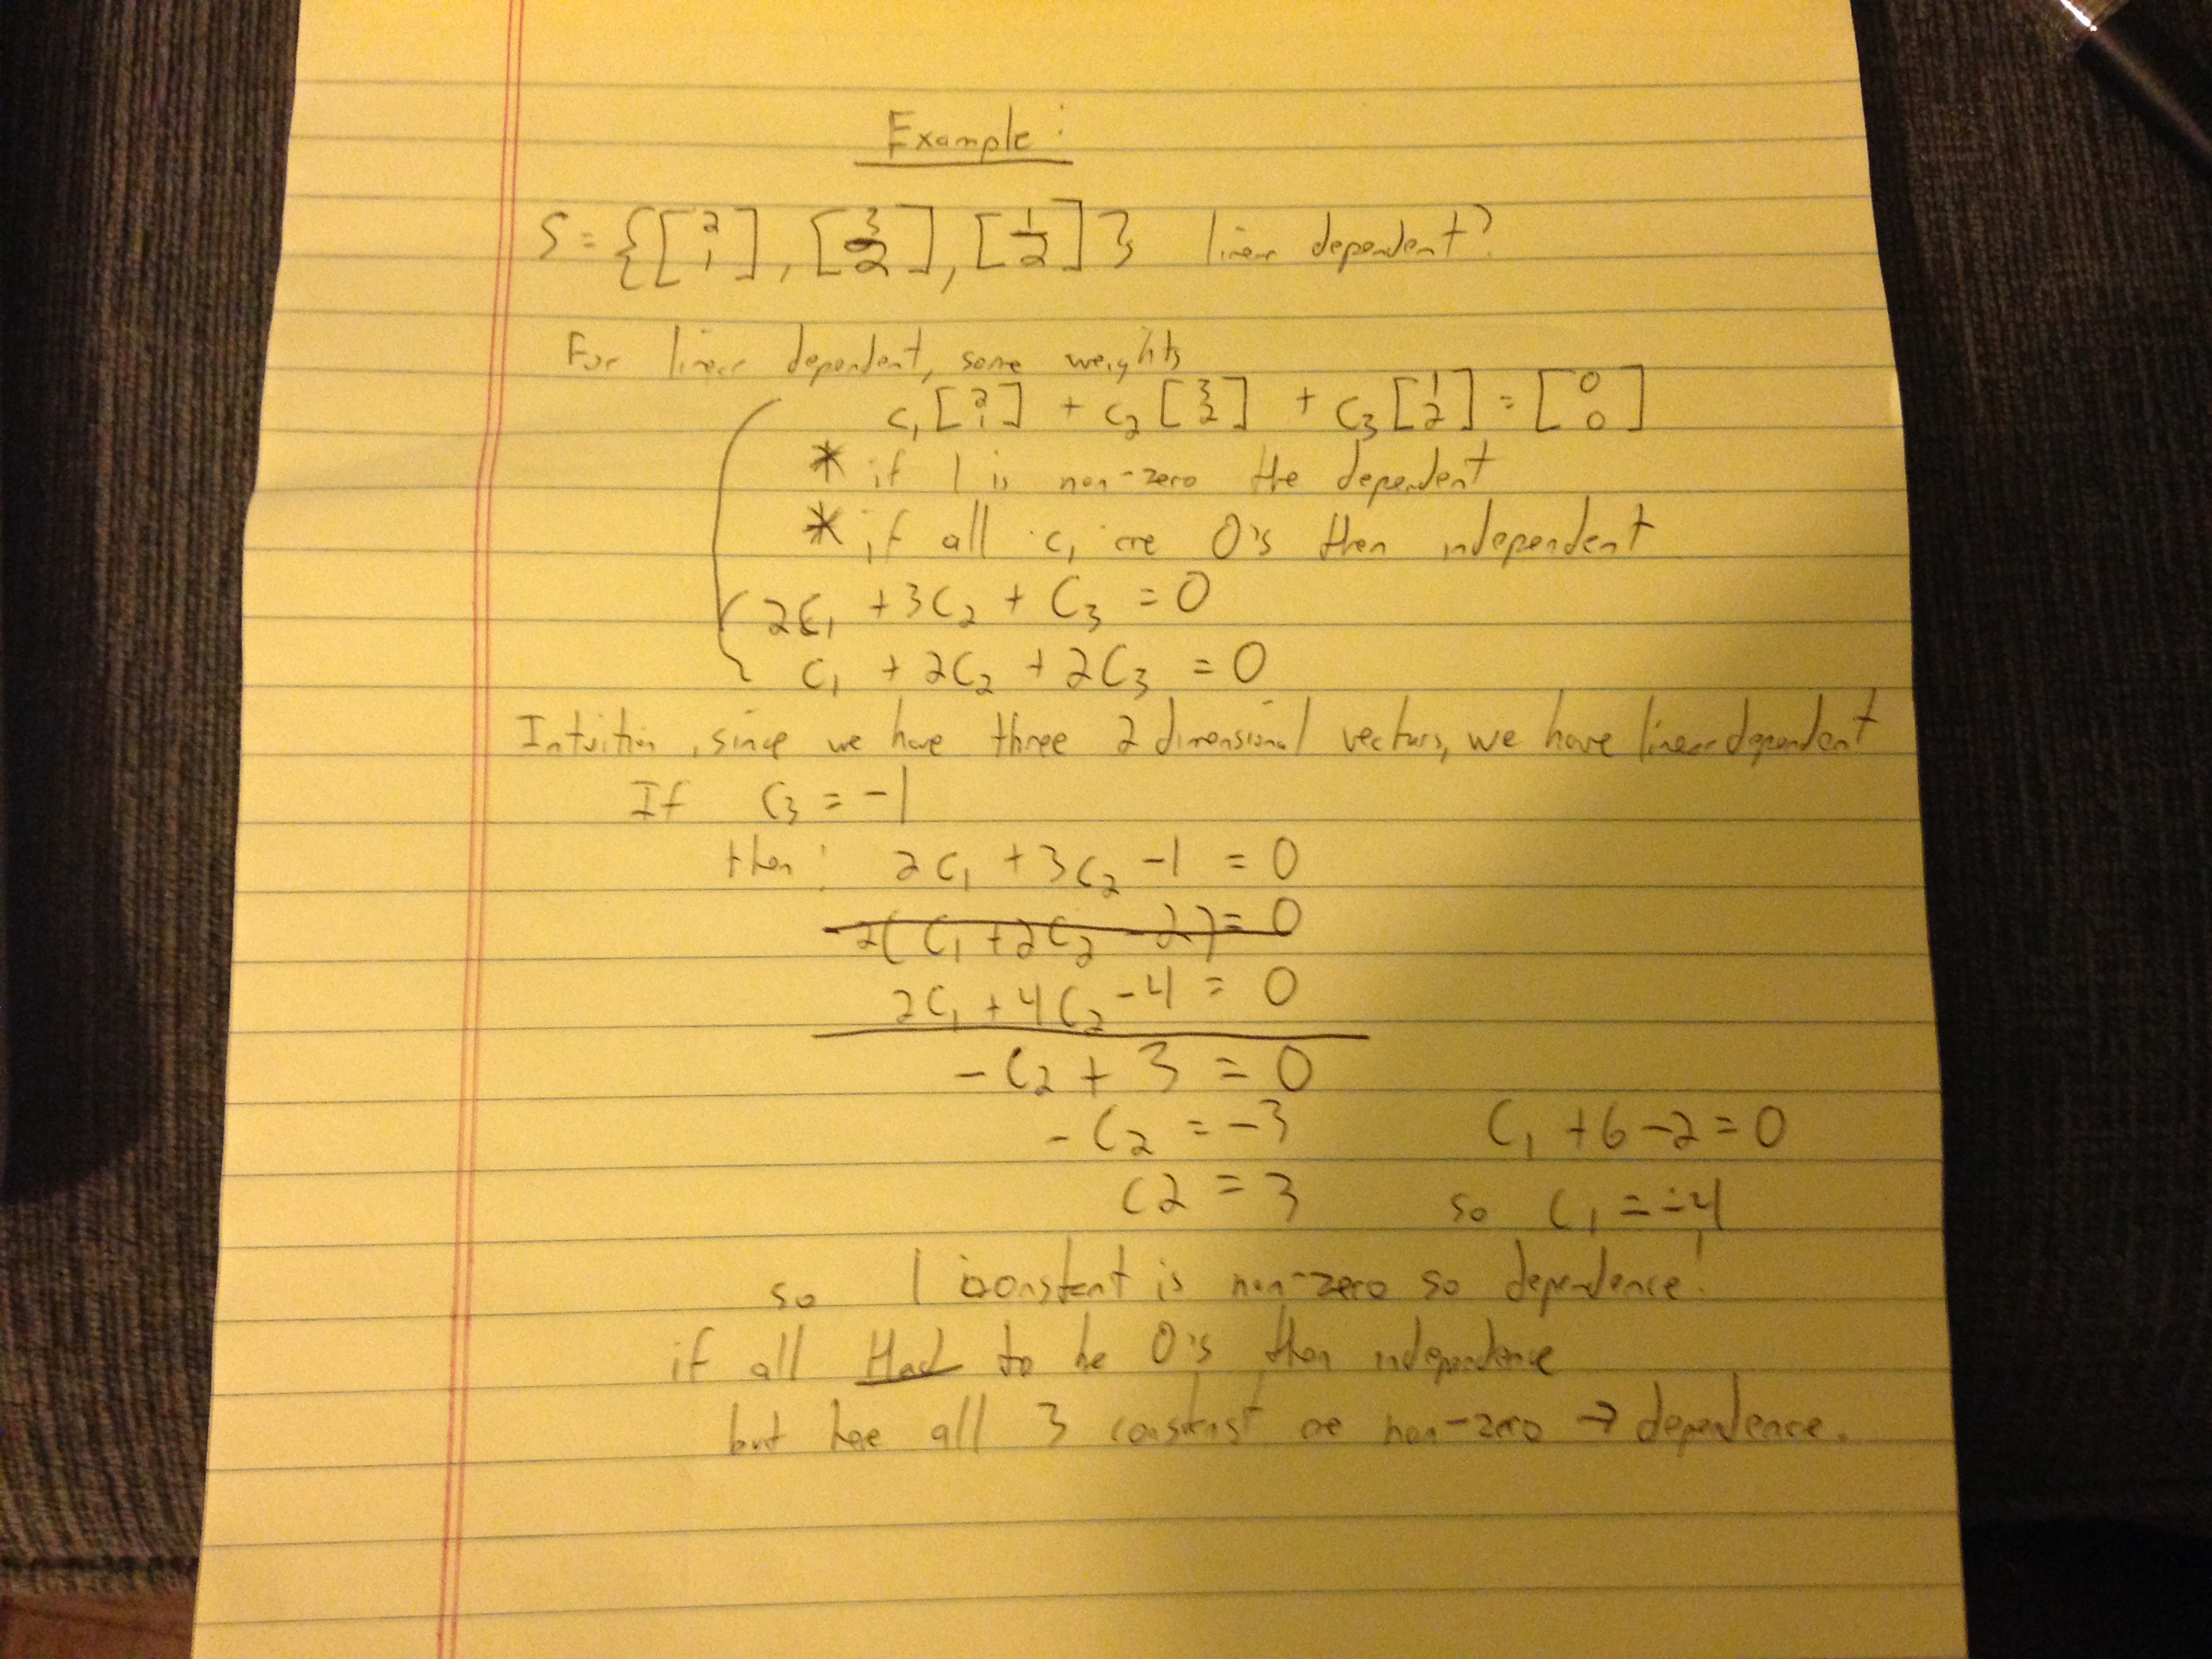 Example:
S = {[2 1], [3 2], [1 2]} linear dependent?
For linear dependent, some weights
c₁[2 1] + c₂[3 2] + c₃[1 2] = [0 0]
* if 1 is non-zero the dependent
* if all cᵢ are 0's then independent
{ 2C₁ + 3C₂ + C₃ = 0
C₁ + 2C₂ + 2C₃ = 0
Intuition, since we have three 2 dimensional vectors, we have linear dependent
If C₃ = -1
then: 2C₁ + 3C₂ - 1 = 0
2(C₁ + 2C₂ - 2) = 0
2C₁ + 4C₂ - 4 = 0
-C₂ + 3 = 0
-C₂ = -3 C₁ + 6 - 2 = 0
C2 = 3 so C₁ = -4
so 1 constent is non-zero so dependence.
if all Had to be 0's then independence
but hae all 3 are non-zero → dependence.